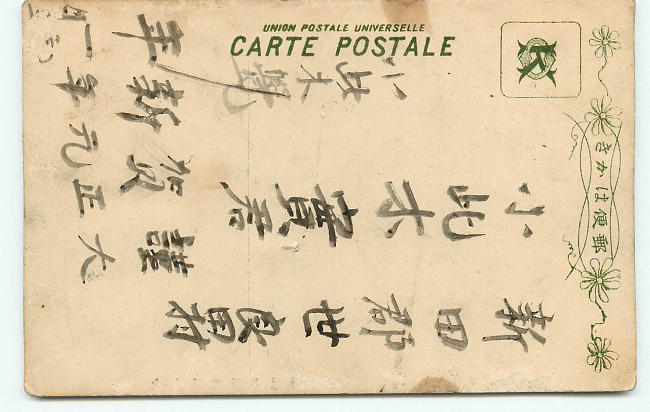 UNION POSTALE UNIVERSELLE
CARTE POSTALE
郵便はかき
新田郡世良田村
小此木實君
謹賀新年
大正元年一
小此木